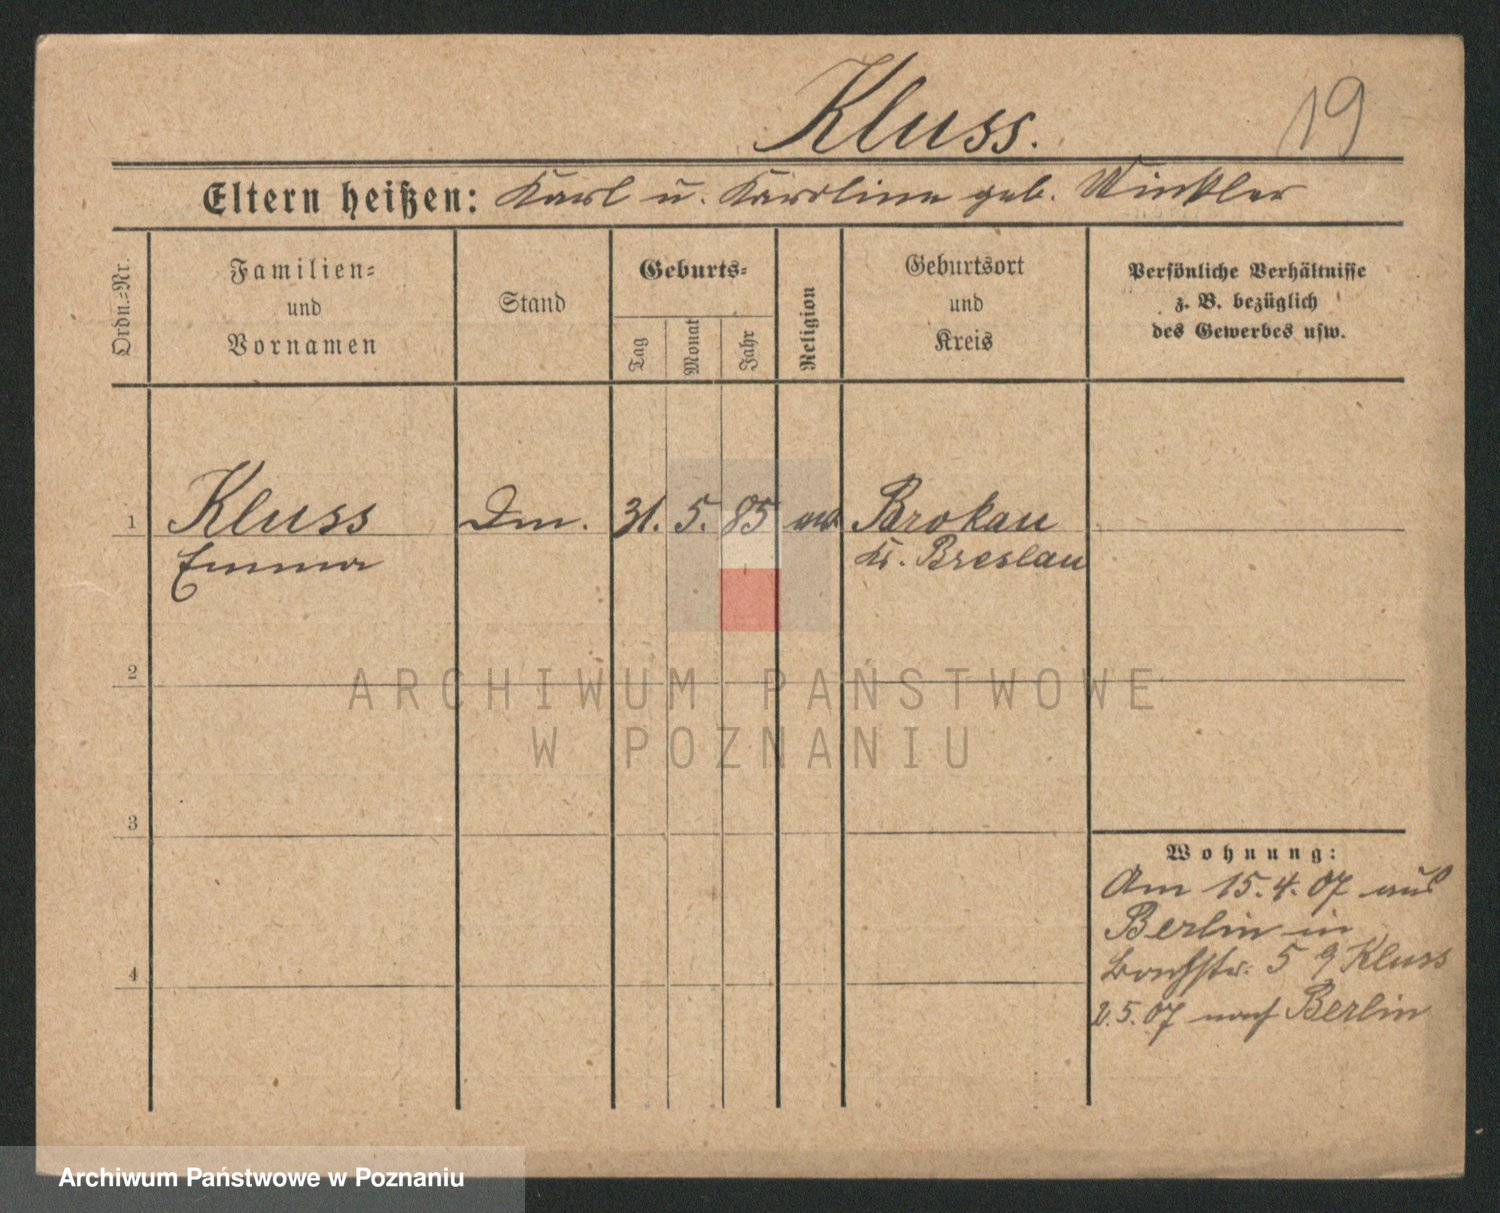 Kluss.
19
Eltern heißen: Karl u. Karoline geb. Winkler
Ordn.=Nr.
Familien=
und
Vornamen
Stand
Geburts=
Tag
Monat
Jahr
Religion
Geburtsort
und
Kreis
Persönliche Verhältnisse
z. B. bezüglich
des Gewerbes usw.
1
Kluss
Emma
31. 5. 85
Brokau
Kr. Breslau
2
ARCHIWUM PAŃSTWOWE
W POZNANIU
3
Wohnung:
Am 15.4.07 aus
Berlin in
5 Kluss
2.5.07 nach Berlin
4
Archiwum Państwowe w Poznaniu